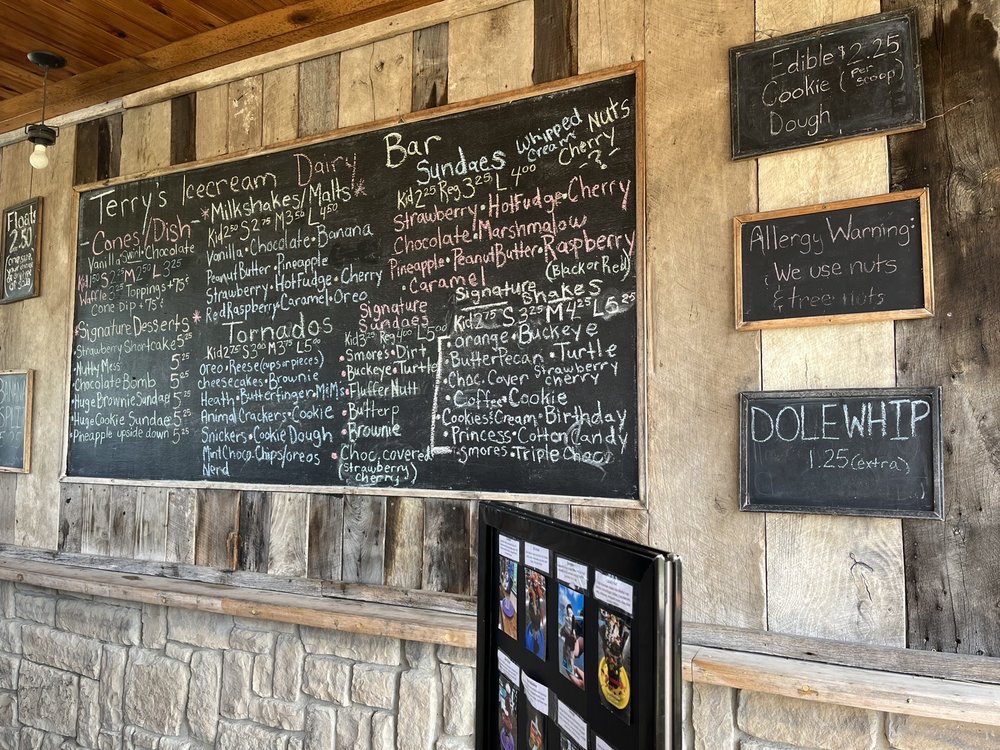 Floats
2.50
Terry's Icecream Dairy Bar
-Cones/Dish-
Vanilla Swirl Chocolate
Kid 1.50 S 2.25 M 2.50 L 3.25
Waffle 5.25 Toppings +75¢
Cone Dip +75¢
*Signature Desserts*
Strawberry Shortcake 5.25
Nutty Mess 5.25
Chocolate Bomb 5.25
Huge Brownie Sundae 5.25
Huge Cookie Sundae 5.25
Pineapple upside down 5.25
*Milkshakes/Malts*
Kid 2.50 S 2.75 M 3.50 L 4.50
Vanilla • Chocolate • Banana
Peanut Butter • Pineapple
Strawberry • Hot Fudge • Cherry
Red Raspberry • Caramel • Oreo
Tornados
Kid 2.75 S 3.00 M 3.75 L 5.00
Oreo • Reese (cups or pieces)
cheesecakes • Brownie
Heath • Butterfinger • M&Ms
Animal Crackers • Cookie
Snickers • Cookie Dough
Mint Choco. Chips/oreos
Nerd
Sundaes
Whipped Cream
Nuts
Cherry
?
Kid 2.25 Reg 3.25 L 4.00
Strawberry • Hot Fudge • Cherry
Chocolate • Marshmallow
Pineapple • Peanut Butter • Raspberry
• Caramel (Black or Red)
Signature
Sundaes
Kid 3.25 Reg 4.00 L 5.00
Smores • Dirt
Buckeye • Turtle
Fluffer Nutt
Butter p
Brownie
Choc. covered
(strawberry
cherry)
Signature Shakes
Kid 2.75 S 3.25 M 4.25 L 5.25
orange • Buckeye
Butter Pecan • Turtle
Choc. Cover strawberry
cherry
Coffee • Cookie
Cookies & Cream • Birthday
Princess • Cotton Candy
Smores • Triple Choc
Edible $2.25
Cookie (Per scoop)
Dough
Allergy Warning:
We use nuts
& tree nuts
DOLEWHIP
1.25 (extra)